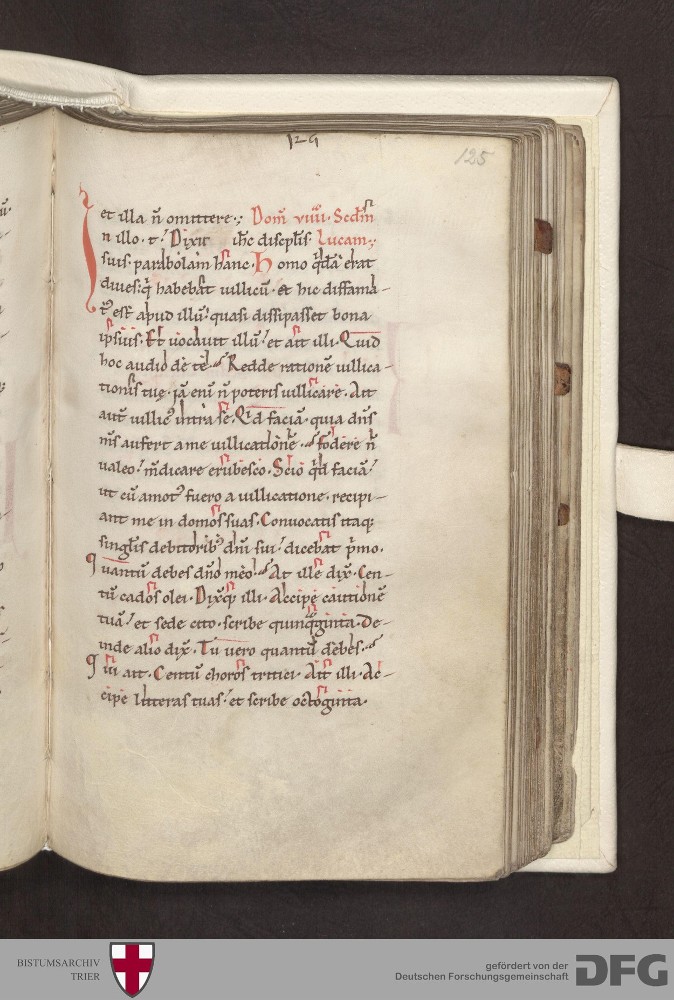 129
125
et illa n̄ omittere·; Dom̄ viiii· Scdm̄
n illo· t̄· Dixit ih̄c discipl̄is· Lucam·;
suis· parabolam hanc· Homo q̇dā erat
diues· q̇ habebat uillicū· et hic diffama-
tꝰ est apud illū· quasi dissipasset bona
ipsius· Et uocauit illū· et ait illi· Quid
hoc audio de te· Redde rationē uillica-
tionis tuę· iā enī n̄ poteris uillicare· Ait
aut̄ uillicꝰ intra se· Qid faciā· quia dn̄s
m̄s aufert a me uillicationē· fodere n̄
ualeo· m̄dicare erubesco· Scio q̇d faciā·
ut cū amotꝰ fuero a uillicatione· recipi-
ant me in domos suas· Conuocatis itaq;
singl̄is debitoribꝰ dn̄i sui· dicebat p̄mo·
Quantū debes dn̄o meo· At ille dix̄· Cen-
tū cados olei· Dix̄q; illi· Accipe cautionē
tuā· et sede cito· scribe quinq̄ginta· De-
inde alio dix̄· Tu uero quantū debes·
Qui ait· Centū choros tritici· Ait illi· Ac-
cipe litteras tuas· et scribe octoginta·
BISTUMSARCHIV
TRIER
gefördert von der
Deutschen Forschungsgemeinschaft
DFG